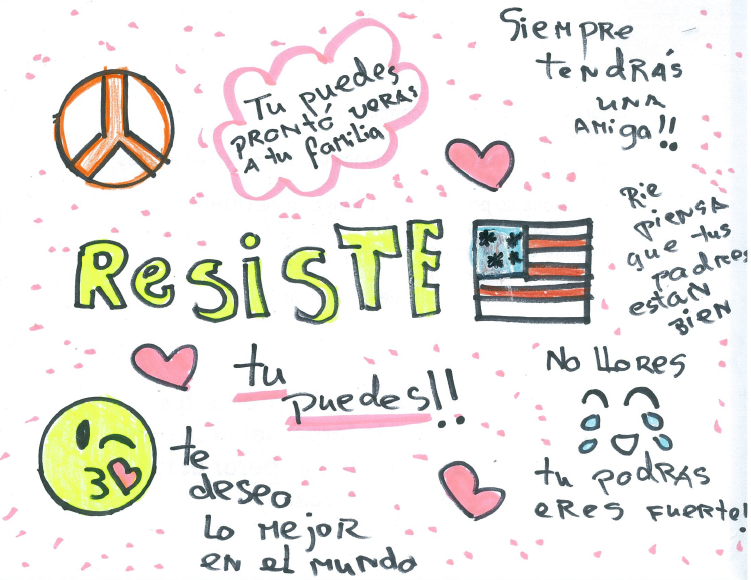 Tu puedes
PRONTÓ VERAS
A tu familia
SiEMPRE
tENdRÁS
UNA
AMiga!!
RiE
piENSA
que tus
padres
estan
BiEN
ResiSTE
tu
puedes!!
No lloRES
tu podRAS
eRES FUERte!
te
deseo
Lo MEjoR
EN el MUNdo